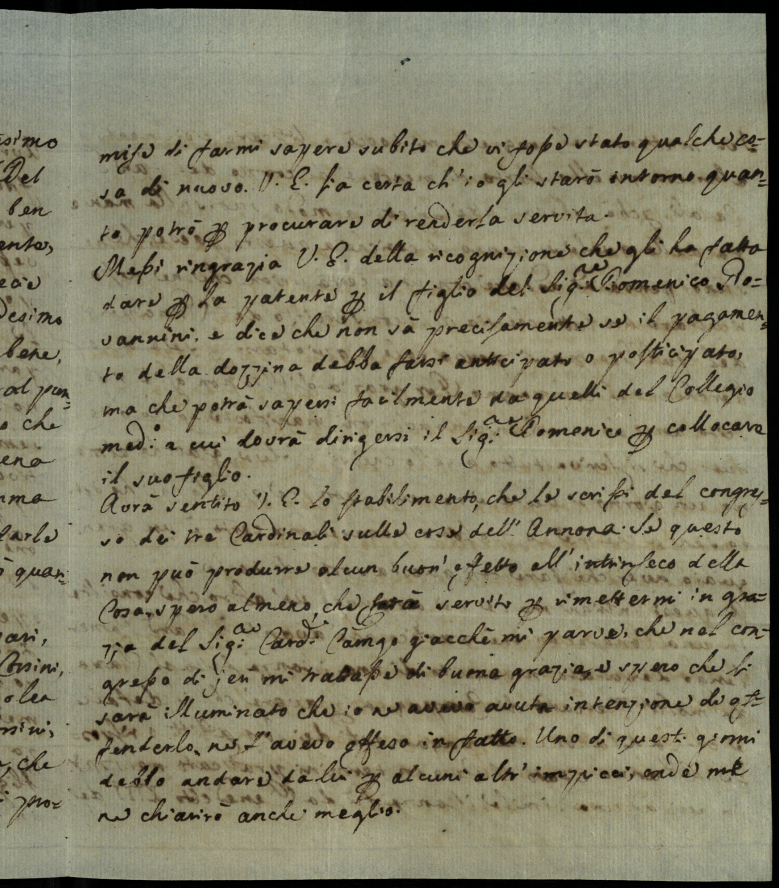 simo
Del
ben
ente,
ecie
desimo
bene,
al pun=
o che
ena
mma
farle
ò quan=
ari,
Corsini,
olea
mini,
, che
i pro=
mise di farmi sapere subito che vi fosse stato qualche co=
sa di nuovo. V. E. sia certa ch' io gli starò intorno quan=
to potrò p procurare di renderla servita.
Messi ringrazia V. E. della ricognizione che gli ha fatta
dare p la patente p il figlio del Sig.re Domenico Bo=
sannini, e dice che non sà precisamente se il pagamen=
to della dozzina debba farsi anticipato o posticipato,
ma che potrà sapersi facilmente da quelli del Collegio
med.o a cui dovrà dirigersi il Sig.re Domenico p collocare
il suo figlio.
Avrà sentito V. E. lo stabilimento, che le scrissi del congres=
so dei tre Cardinali sulle cose dell' Annona. Se questo
non può produrre alcun buon' effetto all' intrinseco della
Cosa, spero almeno, che sarà servito p rimettermi in gra=
zia del Sig.re Card.e giacchè mi parve, che nel con=
gresso di jeri mi trattasse di buona grazia, e spero che si
sarà illuminato che io ne avevo avuta intenzione di of=
fenderlo, ne l' avevo offeso in fatto. Uno di questi giorni
debbo andare da lui p alcuni altri impicci, onde me
ne chiarirò anche meglio.